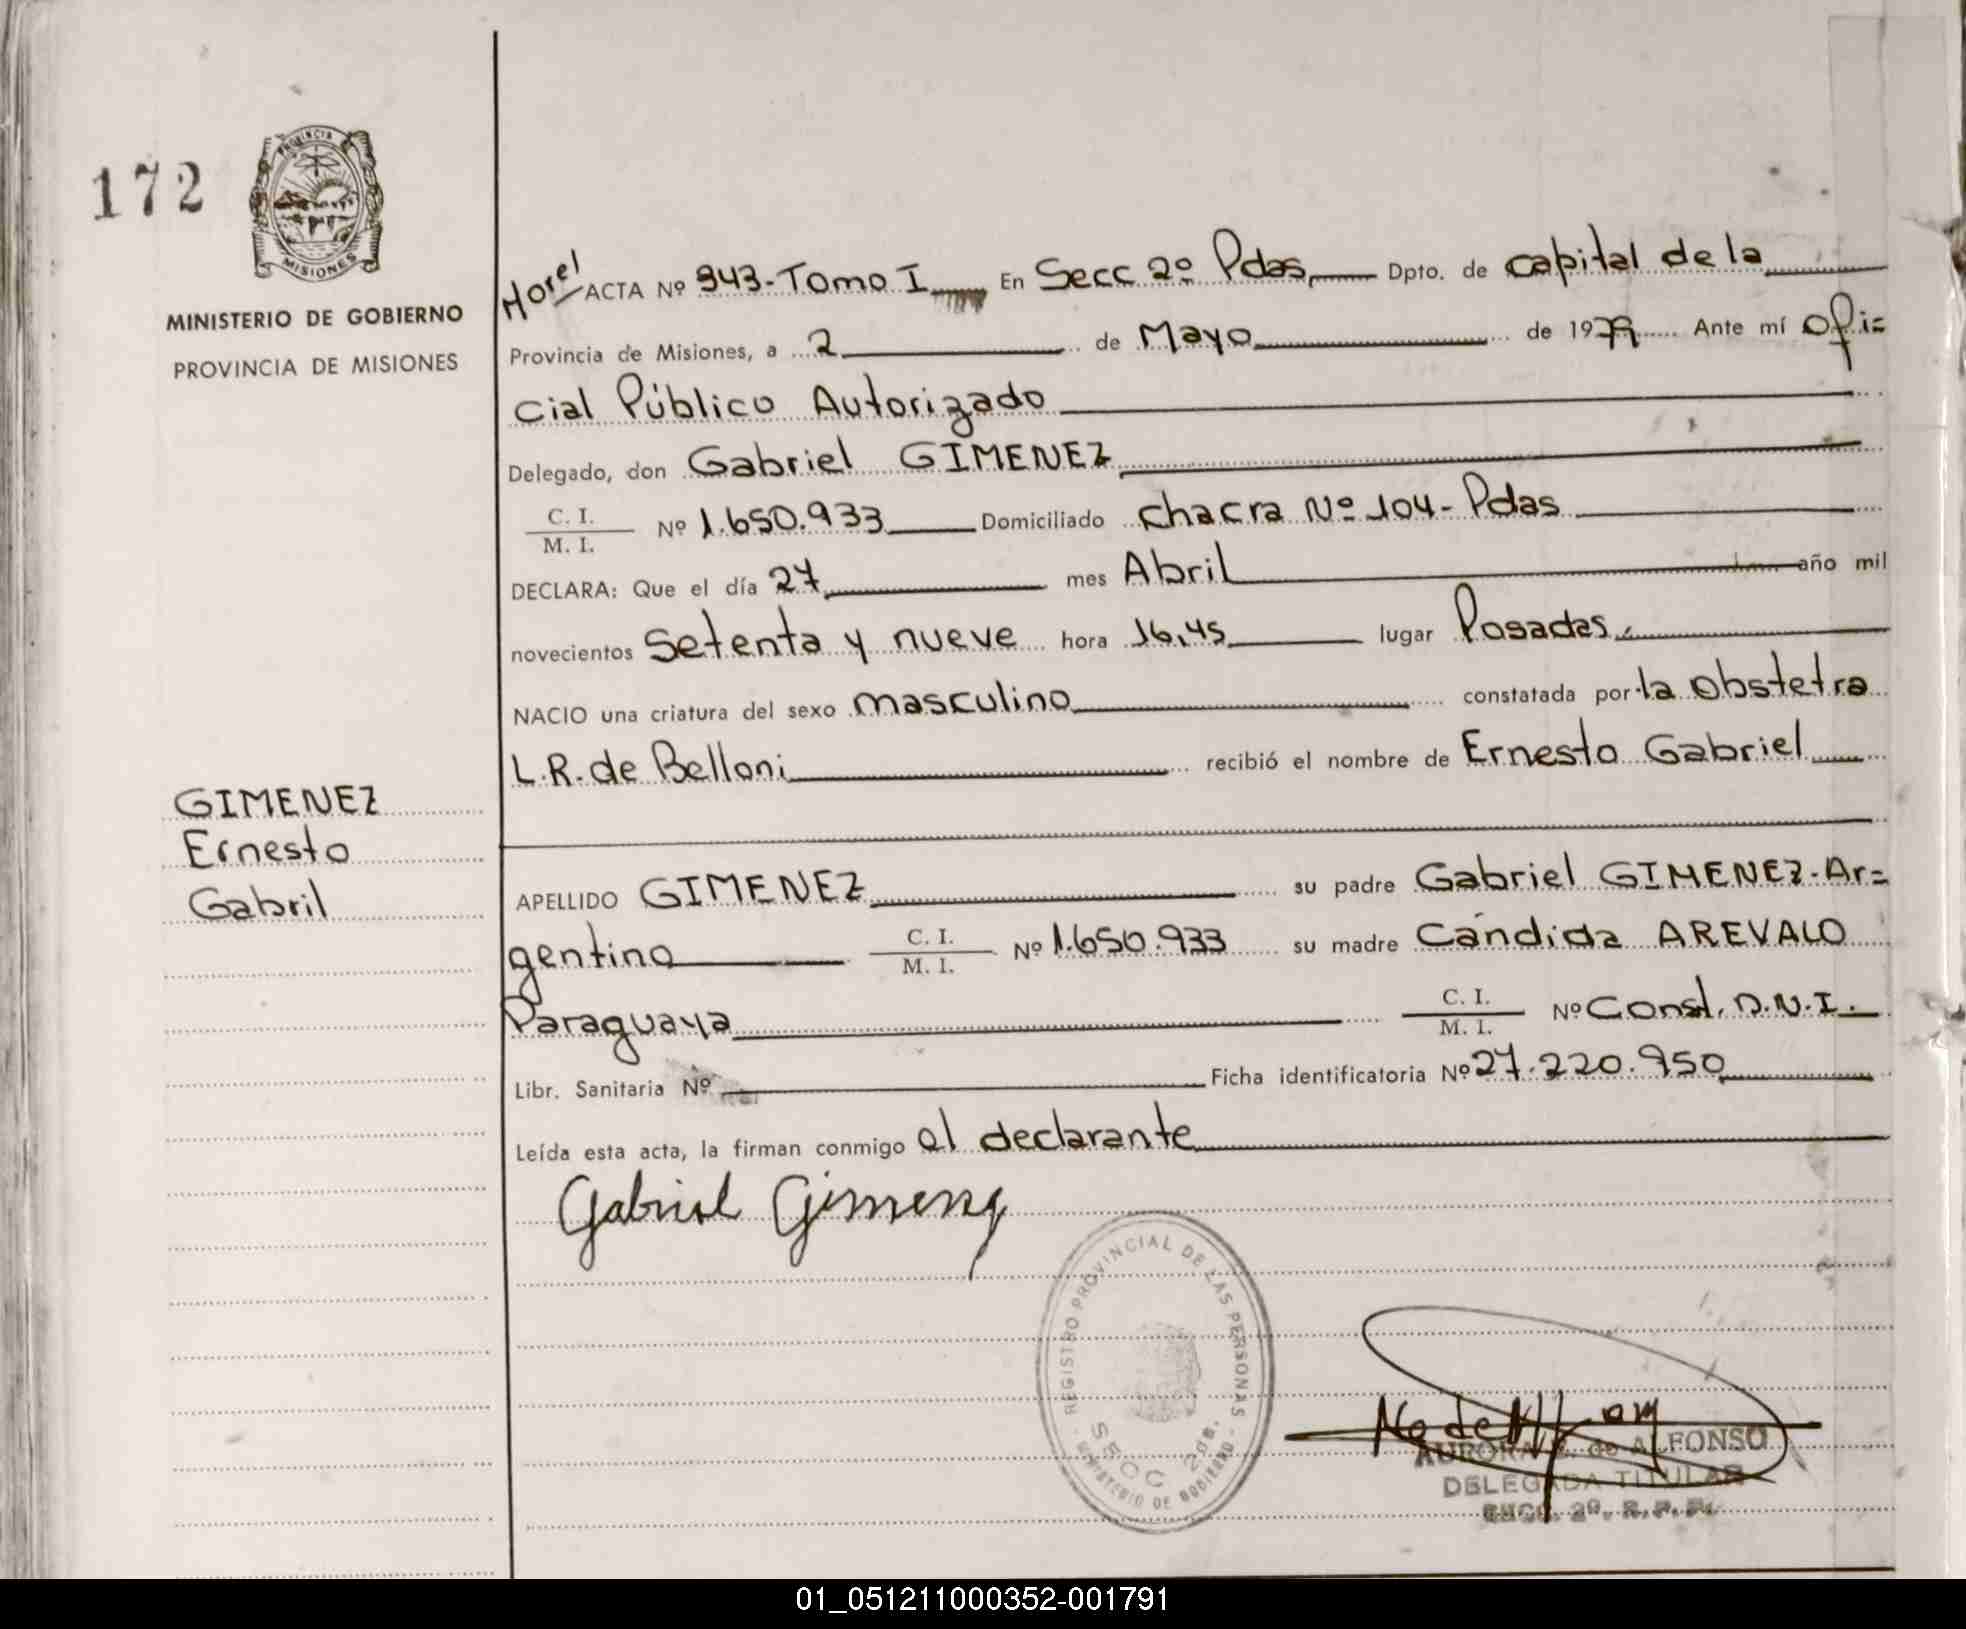 172
PROVINCIA
MISIONES
MINISTERIO DE GOBIERNO
PROVINCIA DE MISIONES
ACTA Nº 943-Tomo I En Secc 2º Pdas, Dpto. de capital de la
Provincia de Misiones, a 2 de Mayo de 1979 Ante mí Ofi=
cial Público Autorizado
Delegado, don Gabriel GIMENEZ
C. I.
M. I.
Nº 1.650.933 Domiciliado Chacra Nº 104- Pdas
DECLARA: Que el día 27 mes Abril año mil
novecientos Setenta y nueve hora 16,45 lugar Posadas.
NACIO una criatura del sexo masculino constatada por la Obstetra
L.R. de Belloni recibió el nombre de Ernesto Gabriel
GIMENEZ
Ernesto
Gabril
APELLIDO GIMENEZ su padre Gabriel GIMENEZ-Ar=
gentino C. I. M. I. Nº 1.650.933 su madre Cándida AREVALO
Paraguaya C. I. M. I. Nº Const. D.N.I.
Libr. Sanitaria Nº Ficha identificatoria Nº 27.220.950
Leída esta acta, la firman conmigo el declarante
Gabriel Gimenez
REGISTRO PROVINCIAL DE LAS PERSONAS
MINISTERIO DE GOBIERNO
AURORA de ALFONSO
DELEGADA TITULAR
SECC. 2º. R.P.P.
01_051211000352-001791